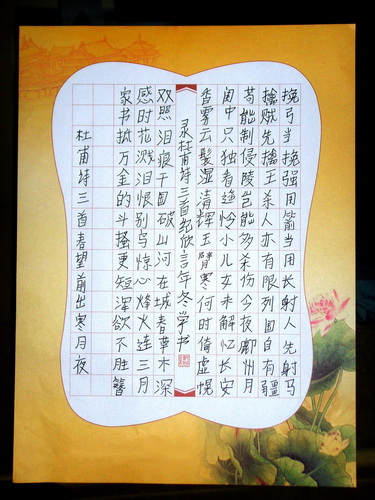 挽弓当挽强用箭当用长射人先射马
擒贼先擒王杀人亦有限列国自有疆
苟能制侵陵岂能多杀伤今夜鄜州月
闺中只独看遥怜小儿女未解忆长安
香雾云鬟湿清辉玉臂寒何时倚虚幌
录杜甫诗三首纪欣言年冬学书
双照泪痕干国破山河在城春草木深
感时花溅泪恨别鸟惊心烽火连三月
家书抵万金的斗搔更短浑欲不胜簪
杜甫诗三首春望前出寒月夜